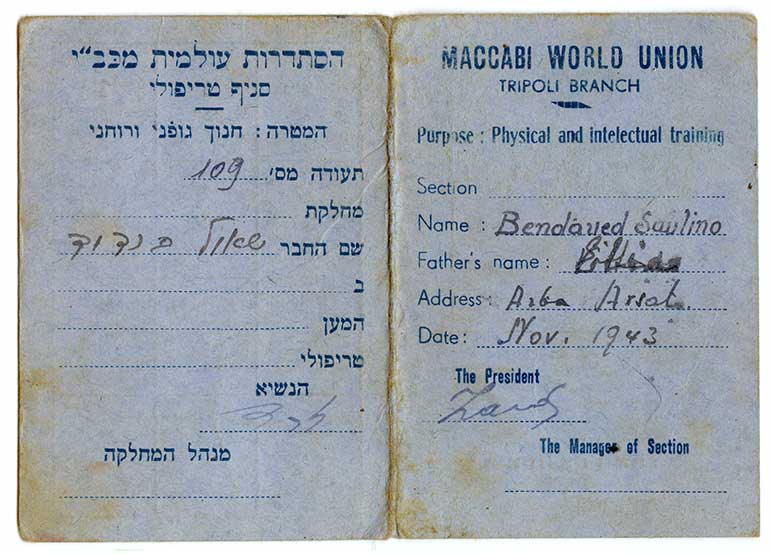 הסתדרות עולמית מכב"י
סניף טריפולי
המטרה: חנוך גופני ורוחני
תעודה מס' 109
מחלקת
שם החבר שאול בנדוד
ב
המען
טריפולי
הנשיא
מנהל המחלקה
MACCABI WORLD UNION
TRIPOLI BRANCH
Purpose : Physical and intelectual training
Section
Name : Bendaued Saulino
Father's name :
Address : Arba Arsat.
Date : Nov. 1943
The President
The Manager of Section